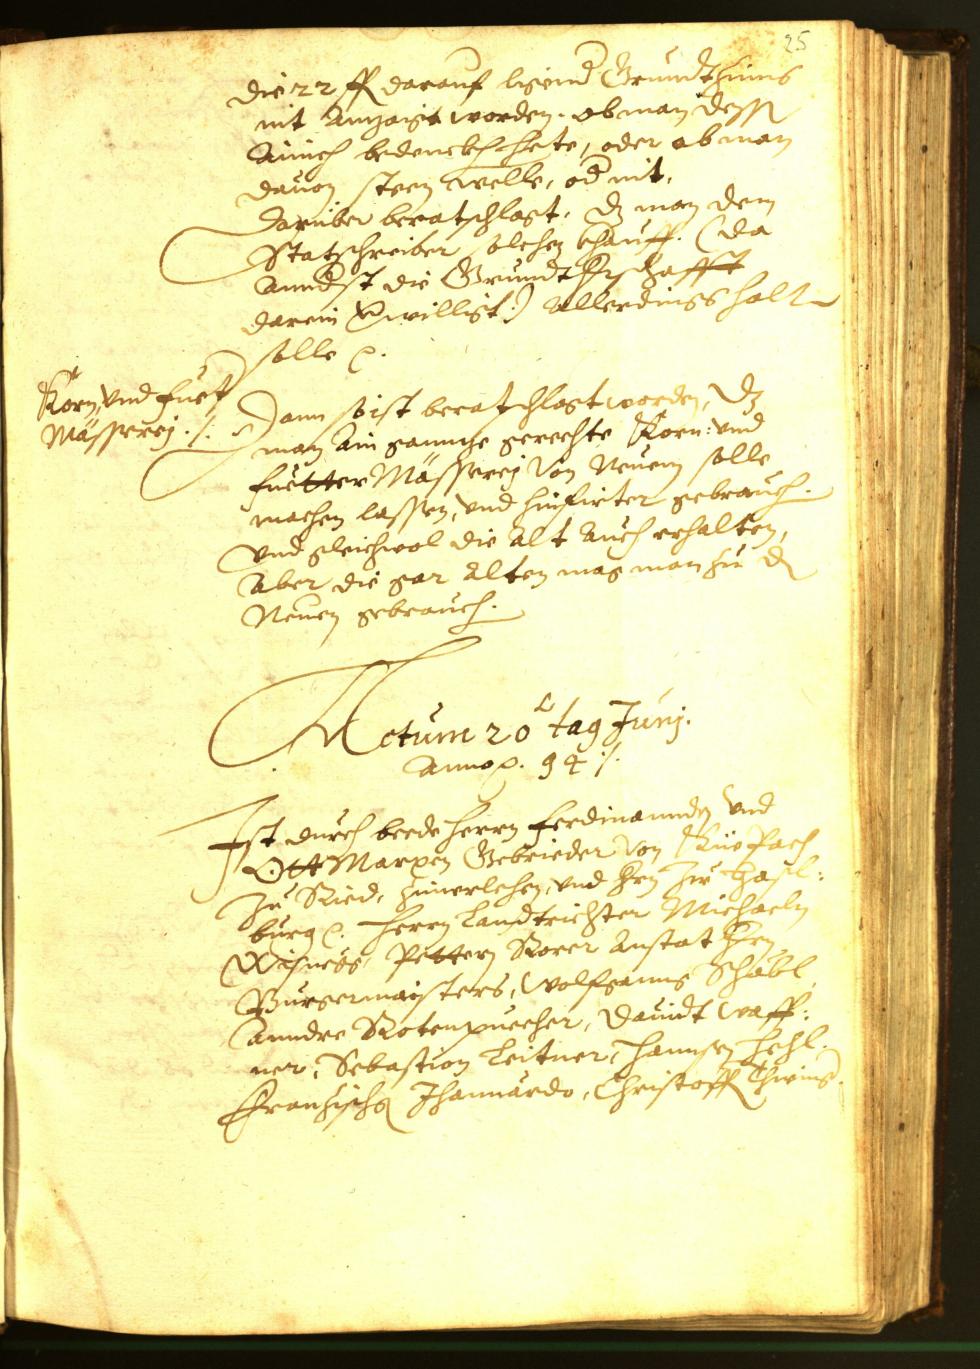 25
die 22 fl darauf ligend Grundthüms
nit anzaigt worden. ob man dessen
ainich bedenckh hete, oder ob man
dauon steen welle, od nit,
Darüber beratschlagt, dz man dem
Statschreiber solchen khauff. (da
annderst die Grundtherschafft
darein verwilligt:) allerdings halten
solle &c.
Korn, vnd fuetter
Mässerej ./.
Dann so ist beratschlagt worden, dz
man ain ganntze gerechte Korn: vnd
fuetter Mässerej von Neuem solle
machen lassen, vnd hinfürter gebrauchen.
vnd gleichwol die alt auch erhalten,
Aber die gar alten mag man zu den
Neuen gebrauchen.
Actum 20 tag Junj.
Anno &c. 94 ./.
Ist durch beede herrn Ferdinannden vnd
Ott Marxen Gebrieder von Küepach
zu Ried, Zimerlehen, vnd Hrn zu Hasl:
burg &c. Herrn Landtrichter Michaeln
Pettern Rorer anstat Hrn
Burgermaisters, Wolfganng Schäbl,
Anndre Rotenpuecher, Dauidt Waff:
ner, Sebastion Leitner, Hannsen Hehl.
Franzischg Jhanardo, Christoff